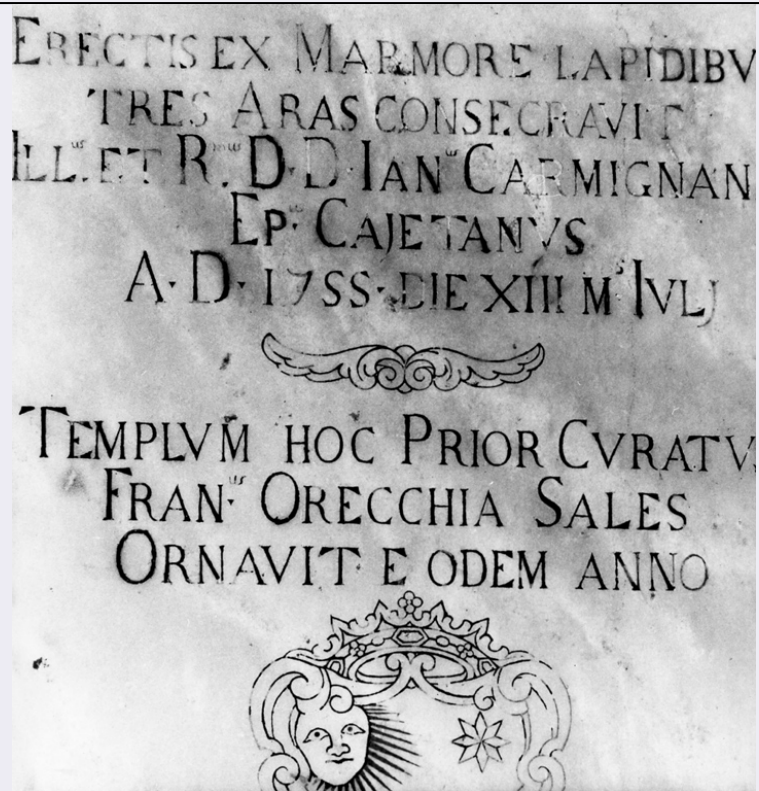 ERECTIS EX MARMORE LAPIDIBV
TRES ARAS CONSECRAVIT
ILL.us ET R.mus D. D. IAN.us CARMIGNAN
EP.us CAJETANVS
A. D. 1755. DIE XIII M.s IVLJ
TEMPLVM HOC PRIOR CVRATV
FRAN.us ORECCHIA SALES
ORNAVIT E ODEM ANNO